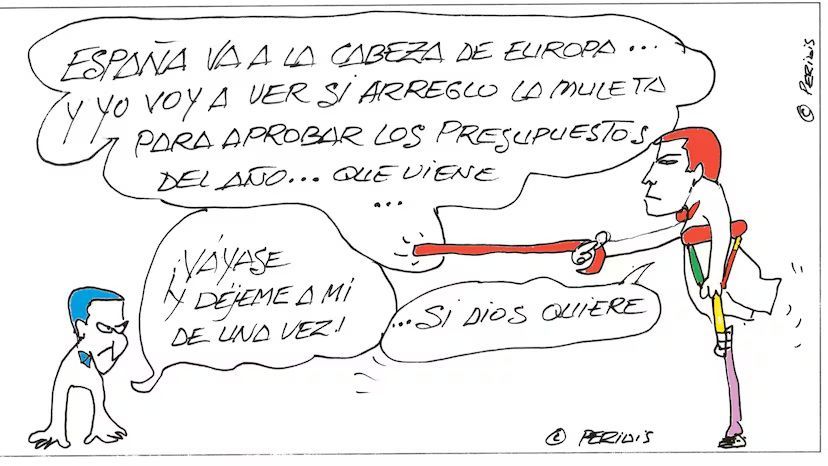 ESPAÑA VA A LA CABEZA DE EUROPA...
Y YO VOY A VER SI ARREGLO LA MULETA
PARA APROBAR LOS PRESUPUESTOS
DEL AÑO... QUE VIENE
...
¡VÁYASE
Y DÉJEME A MI
DE UNA VEZ!
...SI DIOS QUIERE
© PERIDIS
© PERIDIS